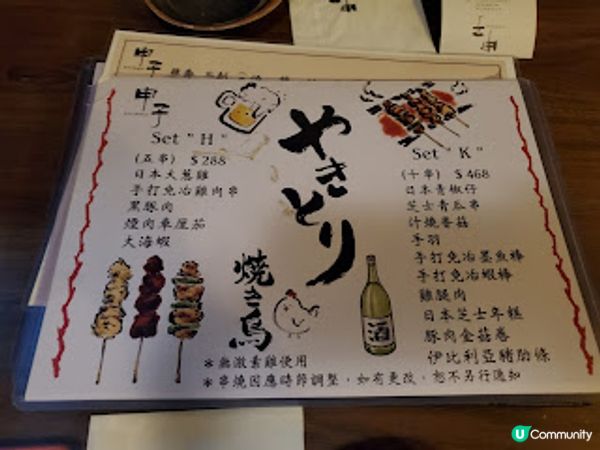 串子
Set "H"
(五串) $288
日本大葱雞
手打免治雞肉串
黑豚肉
煙肉車厘茄
大海蝦
やきとり
焼き鳥
Set "K"
(十串) $468
日本青椒仔
芝士青瓜串
汁燒香菇
手羽
手打免治墨魚棒
手打免治蝦棒
雞腿肉
日本芝士年糕
豚肉金菇卷
伊比利亞豬肋條
酒
*無激素雞使用
*串燒因應時節調整,如有更改,恕不另行通知
U Community